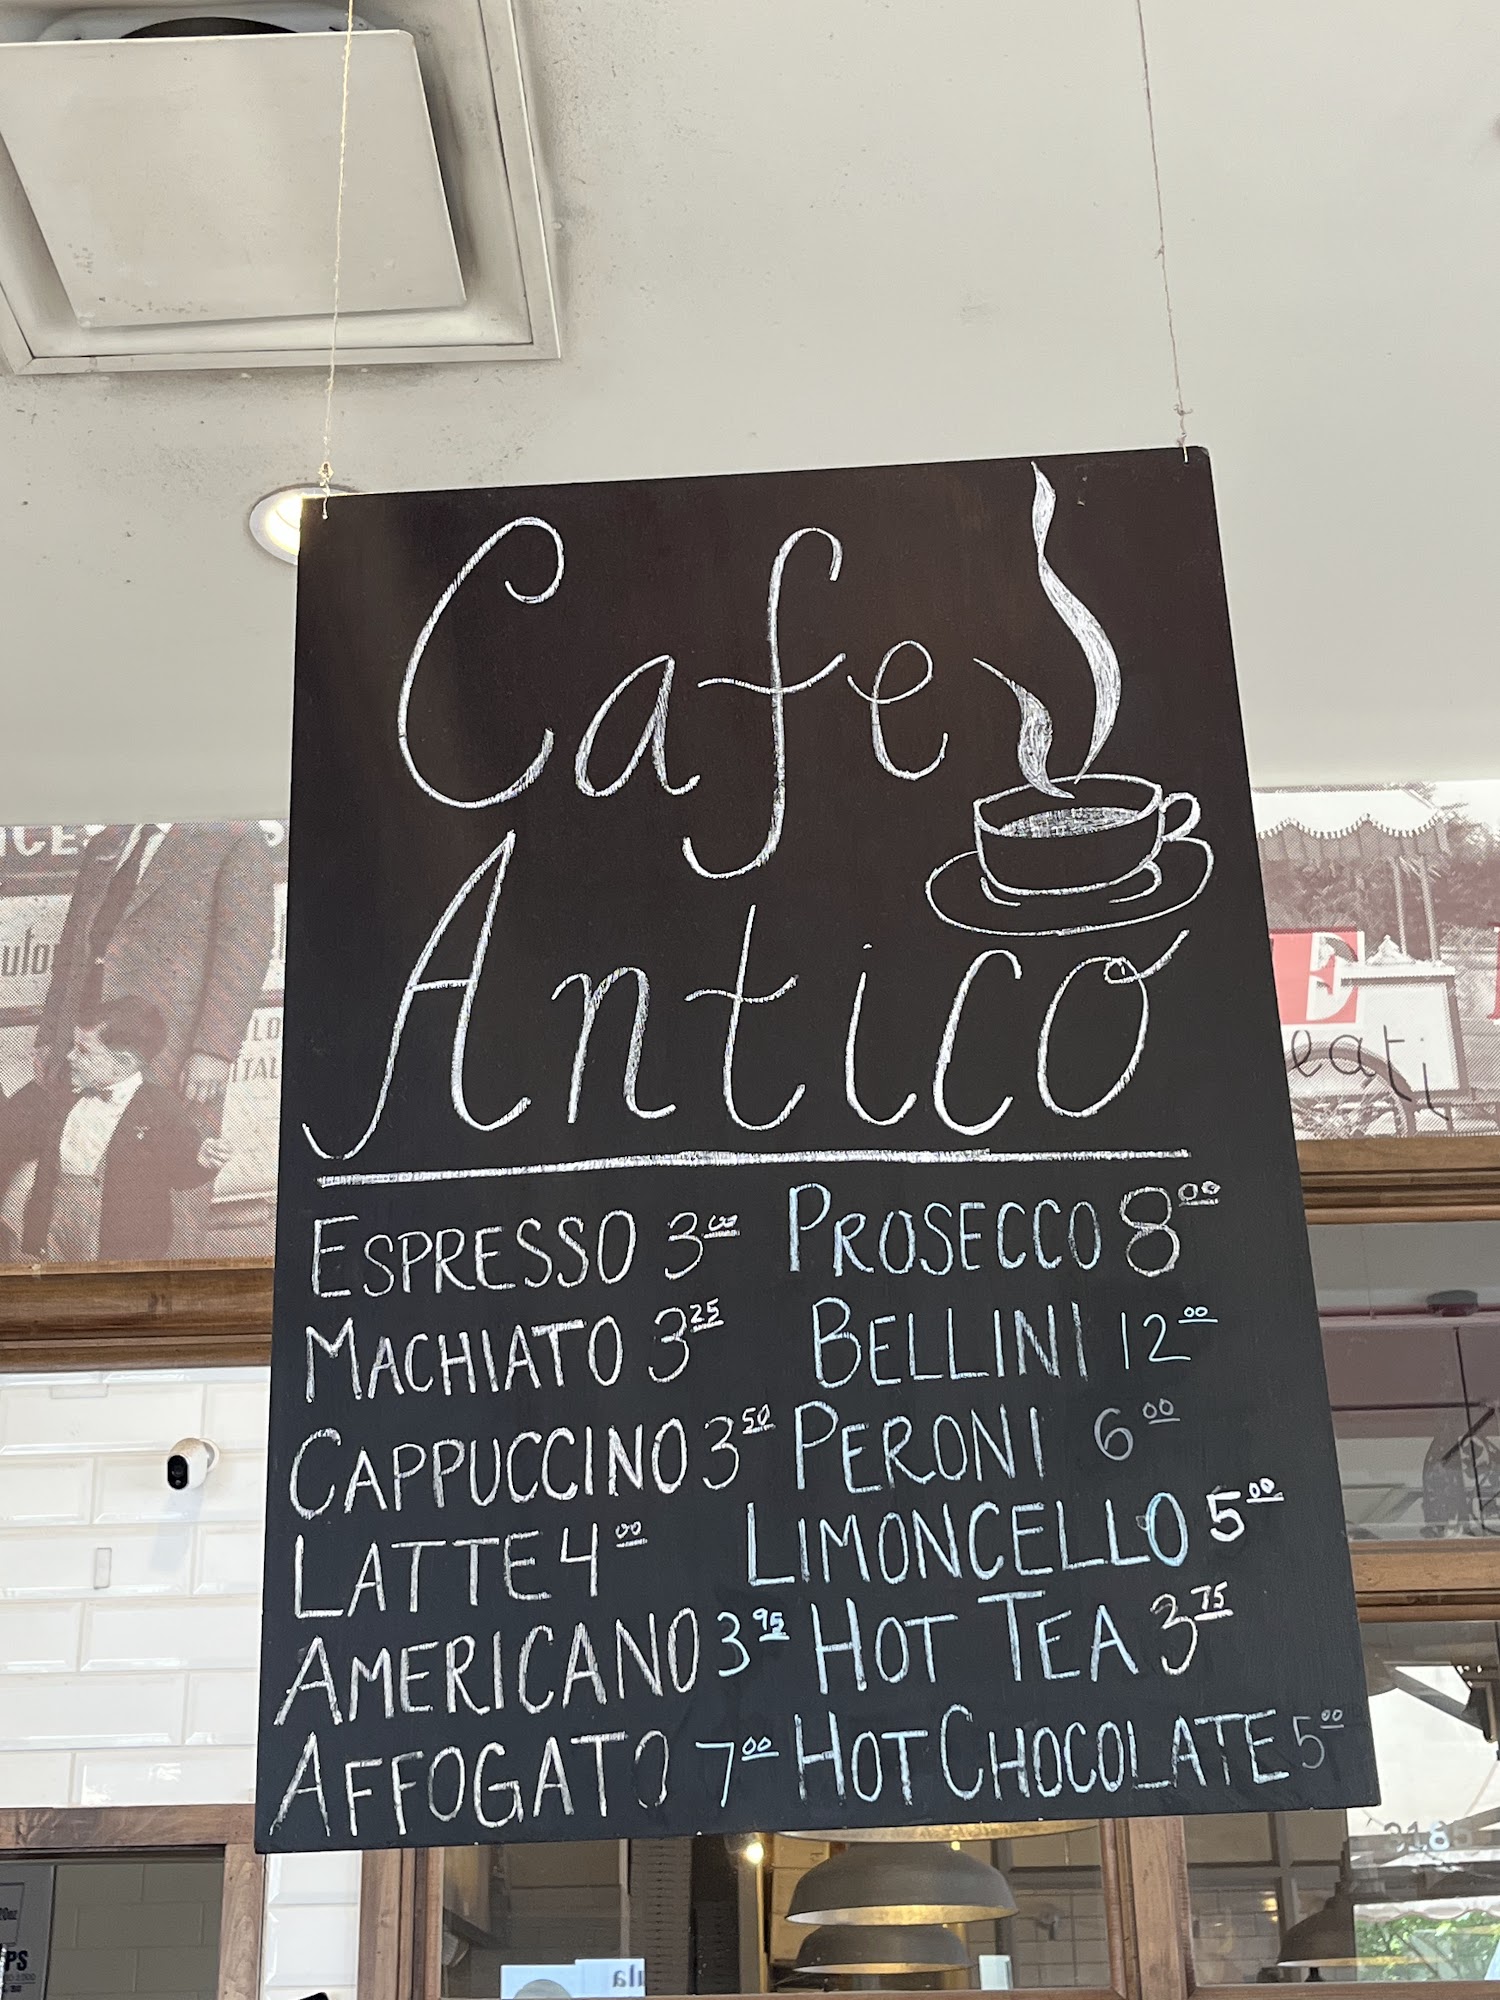 Cafe
Anticó
ESPRESSO 3.00 PROSECCO 8.00
MACHIATO 3.25 BELLINI 12.00
CAPPUCCINO 3.50 PERONI 6.00
LATTE 4.00 LIMONCELLO 5.00
AMERICANO 3.95 HOT TEA 3.75
AFFOGATO 7.00 HOT CHOCOLATE 5.00